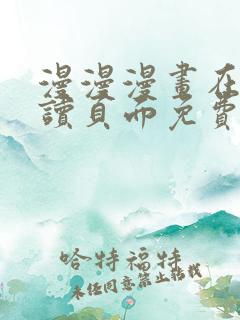 漫漫漫畫在
讀頁面免費
哈特福特
未经同意禁止转载